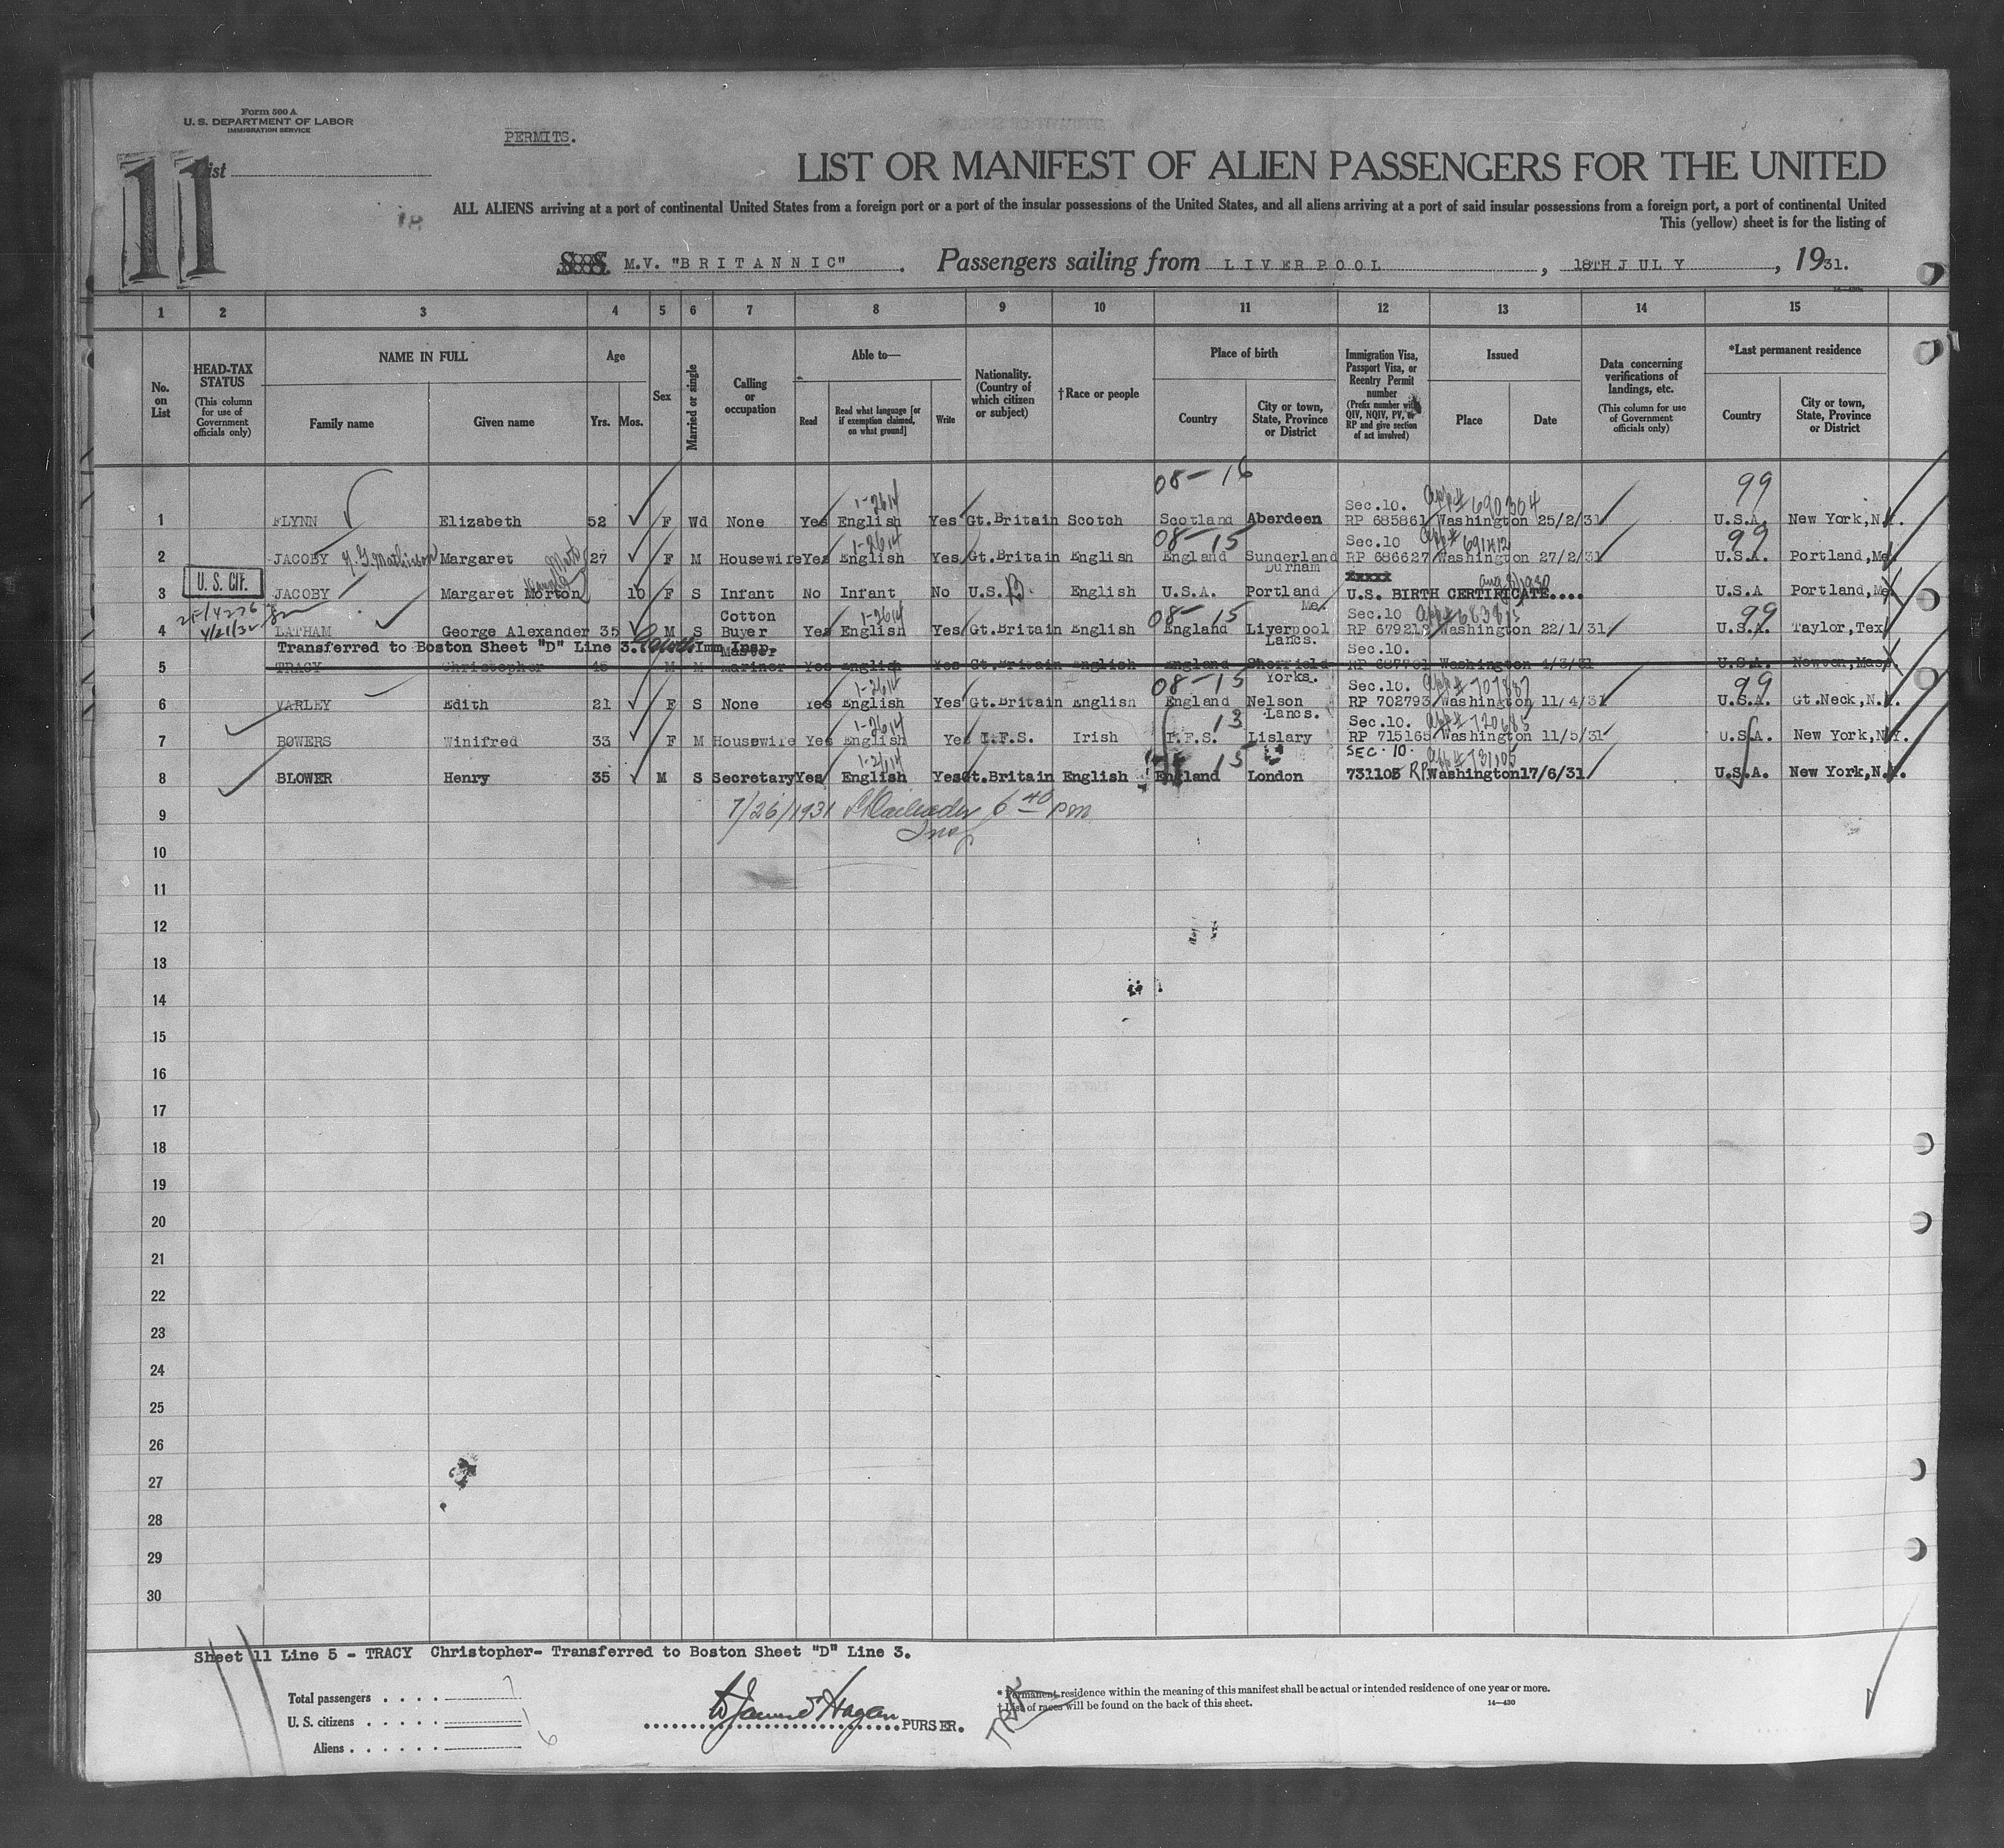 Form 500 A
U. S. DEPARTMENT OF LABOR
IMMIGRATION SERVICE
PERMITS.
11
List
LIST OR MANIFEST OF ALIEN PASSENGERS FOR THE UNITED
ALL ALIENS arriving at a port of continental United States from a foreign port or a port of the insular possessions of the United States, and all aliens arriving at a port of said insular possessions from a foreign port, a port of continental United
This (yellow) sheet is for the listing of
S.S. M.V. "BRITANNIC" . Passengers sailing from LIVERPOOL , 18TH JULY , 1931.
1 2 3 4 5 6 7 8 9 10 11 12 13 14 15
No. on List
HEAD-TAX STATUS (This column for use of Government officials only)
NAME IN FULL
Family name Given name
Age
Yrs. Mos.
Sex
Married or single
Calling or occupation
Able to—
Read Read what language [or if exemption claimed, on what ground] Write
Nationality. (Country of which citizen or subject)
†Race or people
Place of birth
Country City or town, State, Province or District
Immigration Visa, Passport Visa, or Reentry Permit number (Prefix number with QIV, NQIV, PV, or RP and give section of act involved)
Issued
Place Date
Data concerning verifications of landings, etc. (This column for use of Government officials only)
*Last permanent residence
Country City or town, State, Province or District
08-16 99
1-2614 Sec.10. App# 690304
1 FLYNN Elizabeth 52 F Wd None Yes English Yes Gt.Britain Scotch Scotland Aberdeen RP 685861 Washington 25/2/31 U.S.A. New York,N.Y.
1-2614 08-15 Sec.10 App# 691412 99
2 JACOBY Margaret 27 F M Housewife Yes English Yes Gt.Britain English England Sunderland RP 686627 Washington 27/2/31 U.S.A. Portland,Me.
Durham
U. S. CIT. xxxxx Aug 8/1930
3 JACOBY Margaret Morton 10 F S Infant No Infant No U.S. English U.S.A. Portland U.S. BIRTH CERTIFICATE.... U.S.A Portland,Me.
Me.
4/21/32 Cotton 1-2614 08-15 Sec.10 99
4 LATHAM George Alexander 35 M S Buyer Yes English Yes Gt.Britain English England Liverpool RP 679213 Washington 22/1/31 U.S.A. Taylor,Tex
Lancs.
Transferred to Boston Sheet "D" Line 3. Imm Insp.
Master Sec.10.
5 TRACY Christopher 45 M M Mariner Yes English Yes Gt.Britain English England Sheffield RP 687701 Washington 4/3/31 U.S.A. Newton,Mass.
Yorks.
1-2614 08-15 Sec.10. App# 707887 99
6 VARLEY Edith 21 F S None Yes English Yes Gt.Britain English England Nelson RP 702793 Washington 11/4/31 U.S.A. Gt.Neck,N.Y.
Lancs.
1-2614 13 Sec.10. App# 720685
7 BOWERS Winifred 33 F M Housewife Yes English Yes I.F.S. Irish I.F.S. Lislary RP 715165 Washington 11/5/31 U.S.A. New York,N.Y.
1-2614 15 SEC.10. App# 731105
8 BLOWER Henry 35 M S Secretary Yes English Yes Gt.Britain English England London 731105 RP Washington 17/6/31 U.S.A. New York,N.Y.
7/26/1931 6 40 pm
Insp
9
10
11
12
13
14
15
16
17
18
19
20
21
22
23
24
25
26
27
28
29
30
Sheet 11 Line 5 - TRACY Christopher- Transferred to Boston Sheet "D" Line 3.
Total passengers . . . . 7
U. S. citizens . . . . . 1
Aliens . . . . . . 6
PURSER.
* Permanent residence within the meaning of this manifest shall be actual or intended residence of one year or more.
† List of races will be found on the back of this sheet.
14—430